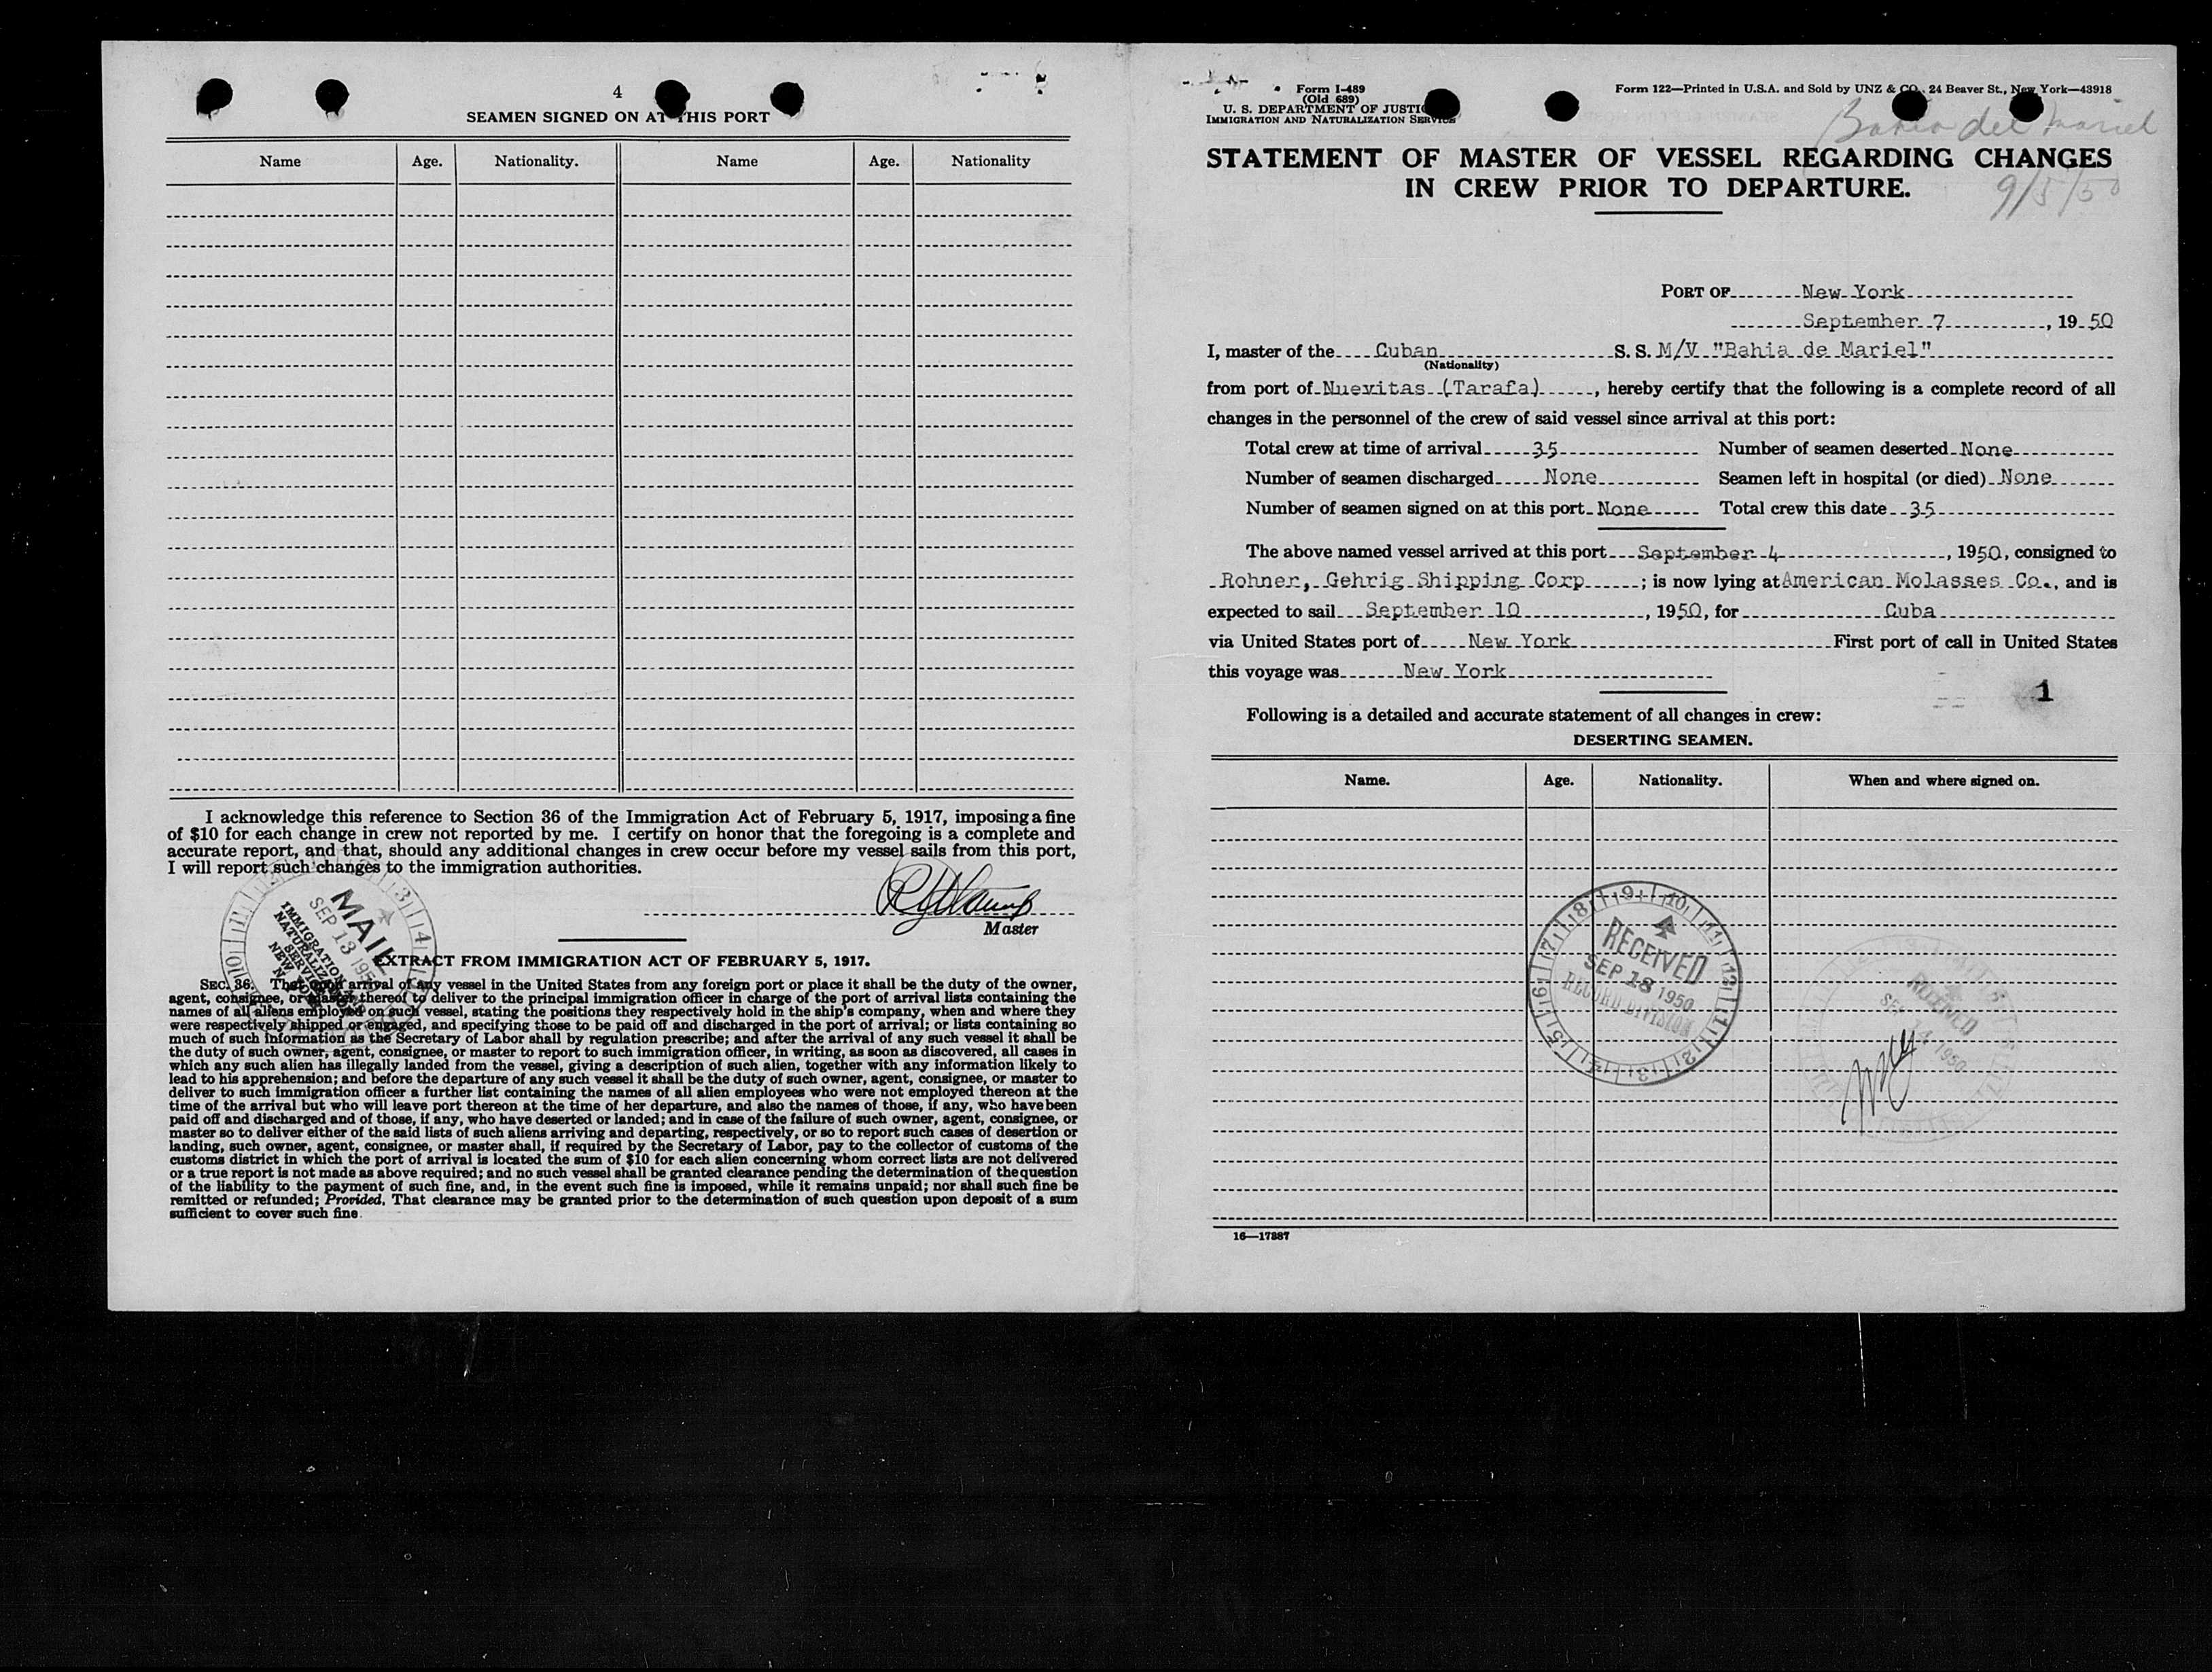 4
SEAMEN SIGNED ON AT THIS PORT
Name Age. Nationality. Name Age. Nationality
I acknowledge this reference to Section 36 of the Immigration Act of February 5, 1917, imposing a fine
of $10 for each change in crew not reported by me. I certify on honor that the foregoing is a complete and
accurate report, and that, should any additional changes in crew occur before my vessel sails from this port,
I will report such changes to the immigration authorities.
Master
MAIL
SEP 13 195
IMMIGRATION
EXTRACT FROM IMMIGRATION ACT OF FEBRUARY 5, 1917.
SEC. 36. That upon arrival of any vessel in the United States from any foreign port or place it shall be the duty of the owner,
agent, consignee, or master thereof to deliver to the principal immigration officer in charge of the port of arrival lists containing the
names of all aliens employed on such vessel, stating the positions they respectively hold in the ship's company, when and where they
were respectively shipped or engaged, and specifying those to be paid off and discharged in the port of arrival; or lists containing so
much of such information as the Secretary of Labor shall by regulation prescribe; and after the arrival of any such vessel it shall be
the duty of such owner, agent, consignee, or master to report to such immigration officer, in writing, as soon as discovered, all cases in
which any such alien has illegally landed from the vessel, giving a description of such alien, together with any information likely to
lead to his apprehension; and before the departure of any such vessel it shall be the duty of such owner, agent, consignee, or master to
deliver to such immigration officer a further list containing the names of all alien employees who were not employed thereon at the
time of the arrival but who will leave port thereon at the time of her departure, and also the names of those, if any, who have been
paid off and discharged and of those, if any, who have deserted or landed; and in case of the failure of such owner, agent, consignee, or
master so to deliver either of the said lists of such aliens arriving and departing, respectively, or so to report such cases of desertion or
landing, such owner, agent, consignee, or master shall, if required by the Secretary of Labor, pay to the collector of customs of the
customs district in which the port of arrival is located the sum of $10 for each alien concerning whom correct lists are not delivered
or a true report is not made as above required; and no such vessel shall be granted clearance pending the determination of the question
of the liability to the payment of such fine, and, in the event such fine is imposed, while it remains unpaid; nor shall such fine be
remitted or refunded; Provided, That clearance may be granted prior to the determination of such question upon deposit of a sum
sufficient to cover such fine.
Form I-489
(Old 689)
U. S. DEPARTMENT OF JUSTICE
IMMIGRATION AND NATURALIZATION SERVICE
Form 122—Printed in U.S.A. and Sold by UNZ & CO., 24 Beaver St., New York—43918
Bahia del Mariel
STATEMENT OF MASTER OF VESSEL REGARDING CHANGES
IN CREW PRIOR TO DEPARTURE.
9/5/50
PORT OF New York
September 7, 1950
I, master of the Cuban S. S. M/V "Bahia de Mariel"
(Nationality)
from port of Nuevitas (Tarafa), hereby certify that the following is a complete record of all
changes in the personnel of the crew of said vessel since arrival at this port:
Total crew at time of arrival 35 Number of seamen deserted None
Number of seamen discharged None Seamen left in hospital (or died) None
Number of seamen signed on at this port None Total crew this date 35
The above named vessel arrived at this port September 4, 1950, consigned to
Rohner, Gehrig Shipping Corp; is now lying at American Molasses Co., and is
expected to sail September 10, 1950, for Cuba
via United States port of New York First port of call in United States
this voyage was New York
1
Following is a detailed and accurate statement of all changes in crew:
DESERTING SEAMEN.
Name. Age. Nationality. When and where signed on.
RECEIVED
SEP 18 1950
RECORD DIVISION
RECEIVED
SEP 14 1950
16—17387